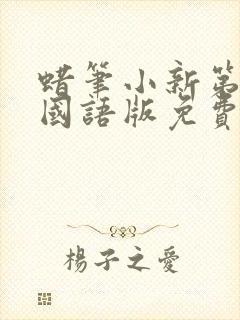 蜡筆小新第
國語版免費
楊子之愛